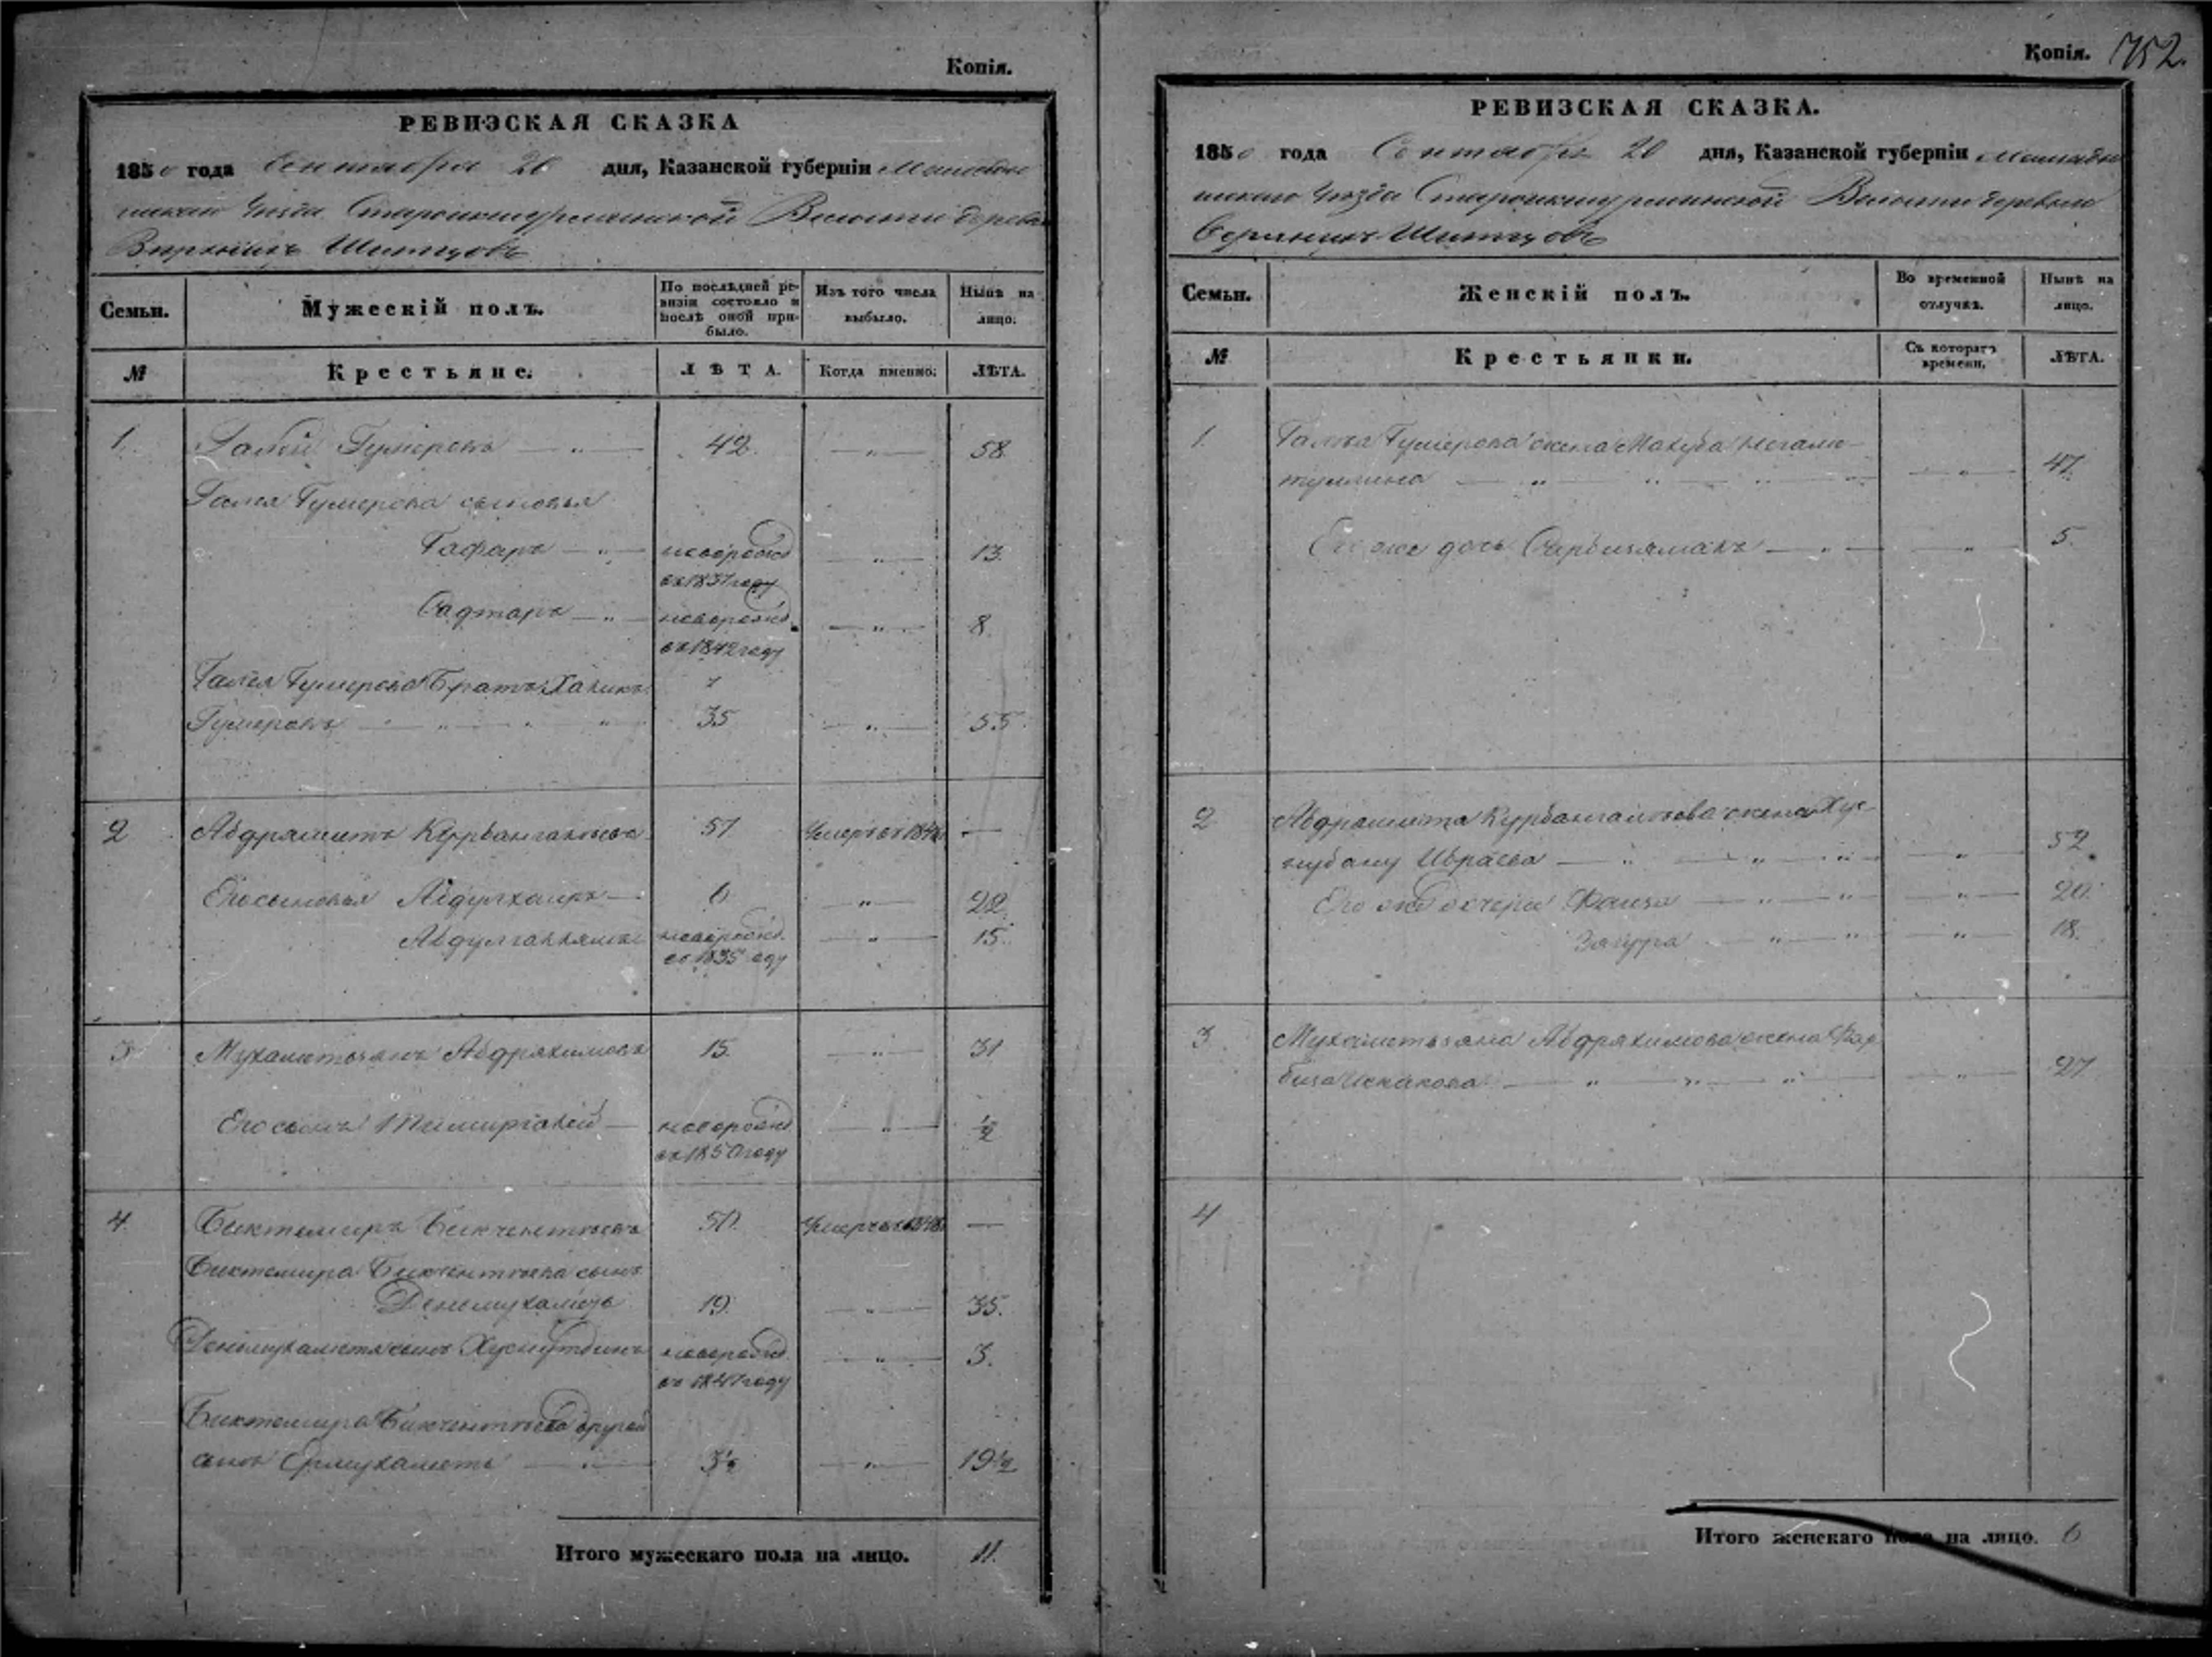 Копія.
РЕВИЗСКАЯ СКАЗКА
1850 года Сентября 20 дня, Казанской губерніи Мамадыш
скаго Уѣзда Волости деревни
Верхнихъ Шитцовъ
Семьи.
Мужескій полъ.
По послѣдней ре-
визіи состояло и
послѣ оной при-
было.
Изъ того числа
выбыло.
Нынѣ на
лицо.
№
Крестьяне.
ЛѢТА.
Когда именно.
ЛѢТА.
1. Галей Гумеровъ — „ — 42. — „ — 58.
Галея Гумерова сыновья
Гафаръ — „ — новорожд — „ — 13.
въ 1837 году
Садтаръ — „ — новорожд. — „ — 8.
въ 1842 году
Галея Гумерова Братъ Халикъ
Гумеровъ — „ — „ — 35 — „ — 55.
2 Абдряшитъ Курбангалеевъ 57 Умеръ въ —
Его сыновья Абдулхаиръ — 6 — „ — 22.
новорожд. — „ — 15.
въ 1835 году
3 Мухаметзянъ Абдряхимовъ 15. — „ — 31
Его сынъ Тимиргалей — новорожд — „ — ½
въ 1850 году
4. Биктемиръ Бикчентеевъ 50. Умеръ въ —
Биктемира Бикчентеева сынъ
19. — „ — 35.
сынъ Хуснутдинъ новорожд. — „ — 3.
въ 1847 году
Биктемира Бикчентеева другой
сынъ Ермухаметъ — „ — 3½ — „ — 19½
Итого мужескаго пола на лицо. 11.
Копія. 752.
РЕВИЗСКАЯ СКАЗКА.
1850 года Сентября 20 дня, Казанской губерніи Мамады
шскаго Уѣзда Волости деревни
Верхнихъ Шитцовъ
Семьи.
Женскій полъ.
Во временной
отлучкѣ.
Нынѣ на
лицо.
№
Крестьянки.
Съ котораго
времени.
ЛѢТА.
1. Галея Гумерова жена
— „ — „ — „ — „ — — „ — 47.
Его же дочь — „ — — „ — 5.
2 Абдрашита Курбангалеева жена Хус-
нубану Ибраева — „ — „ — „ — — „ — 52.
Его же дочери Фаиза — „ — „ — „ — 20.
Загура — „ — „ — „ — 18.
3 Мухаметзяна Абдряхимова жена
Исхакова — „ — „ — „ — — „ — 27
4
Итого женскаго пола на лицо. 6